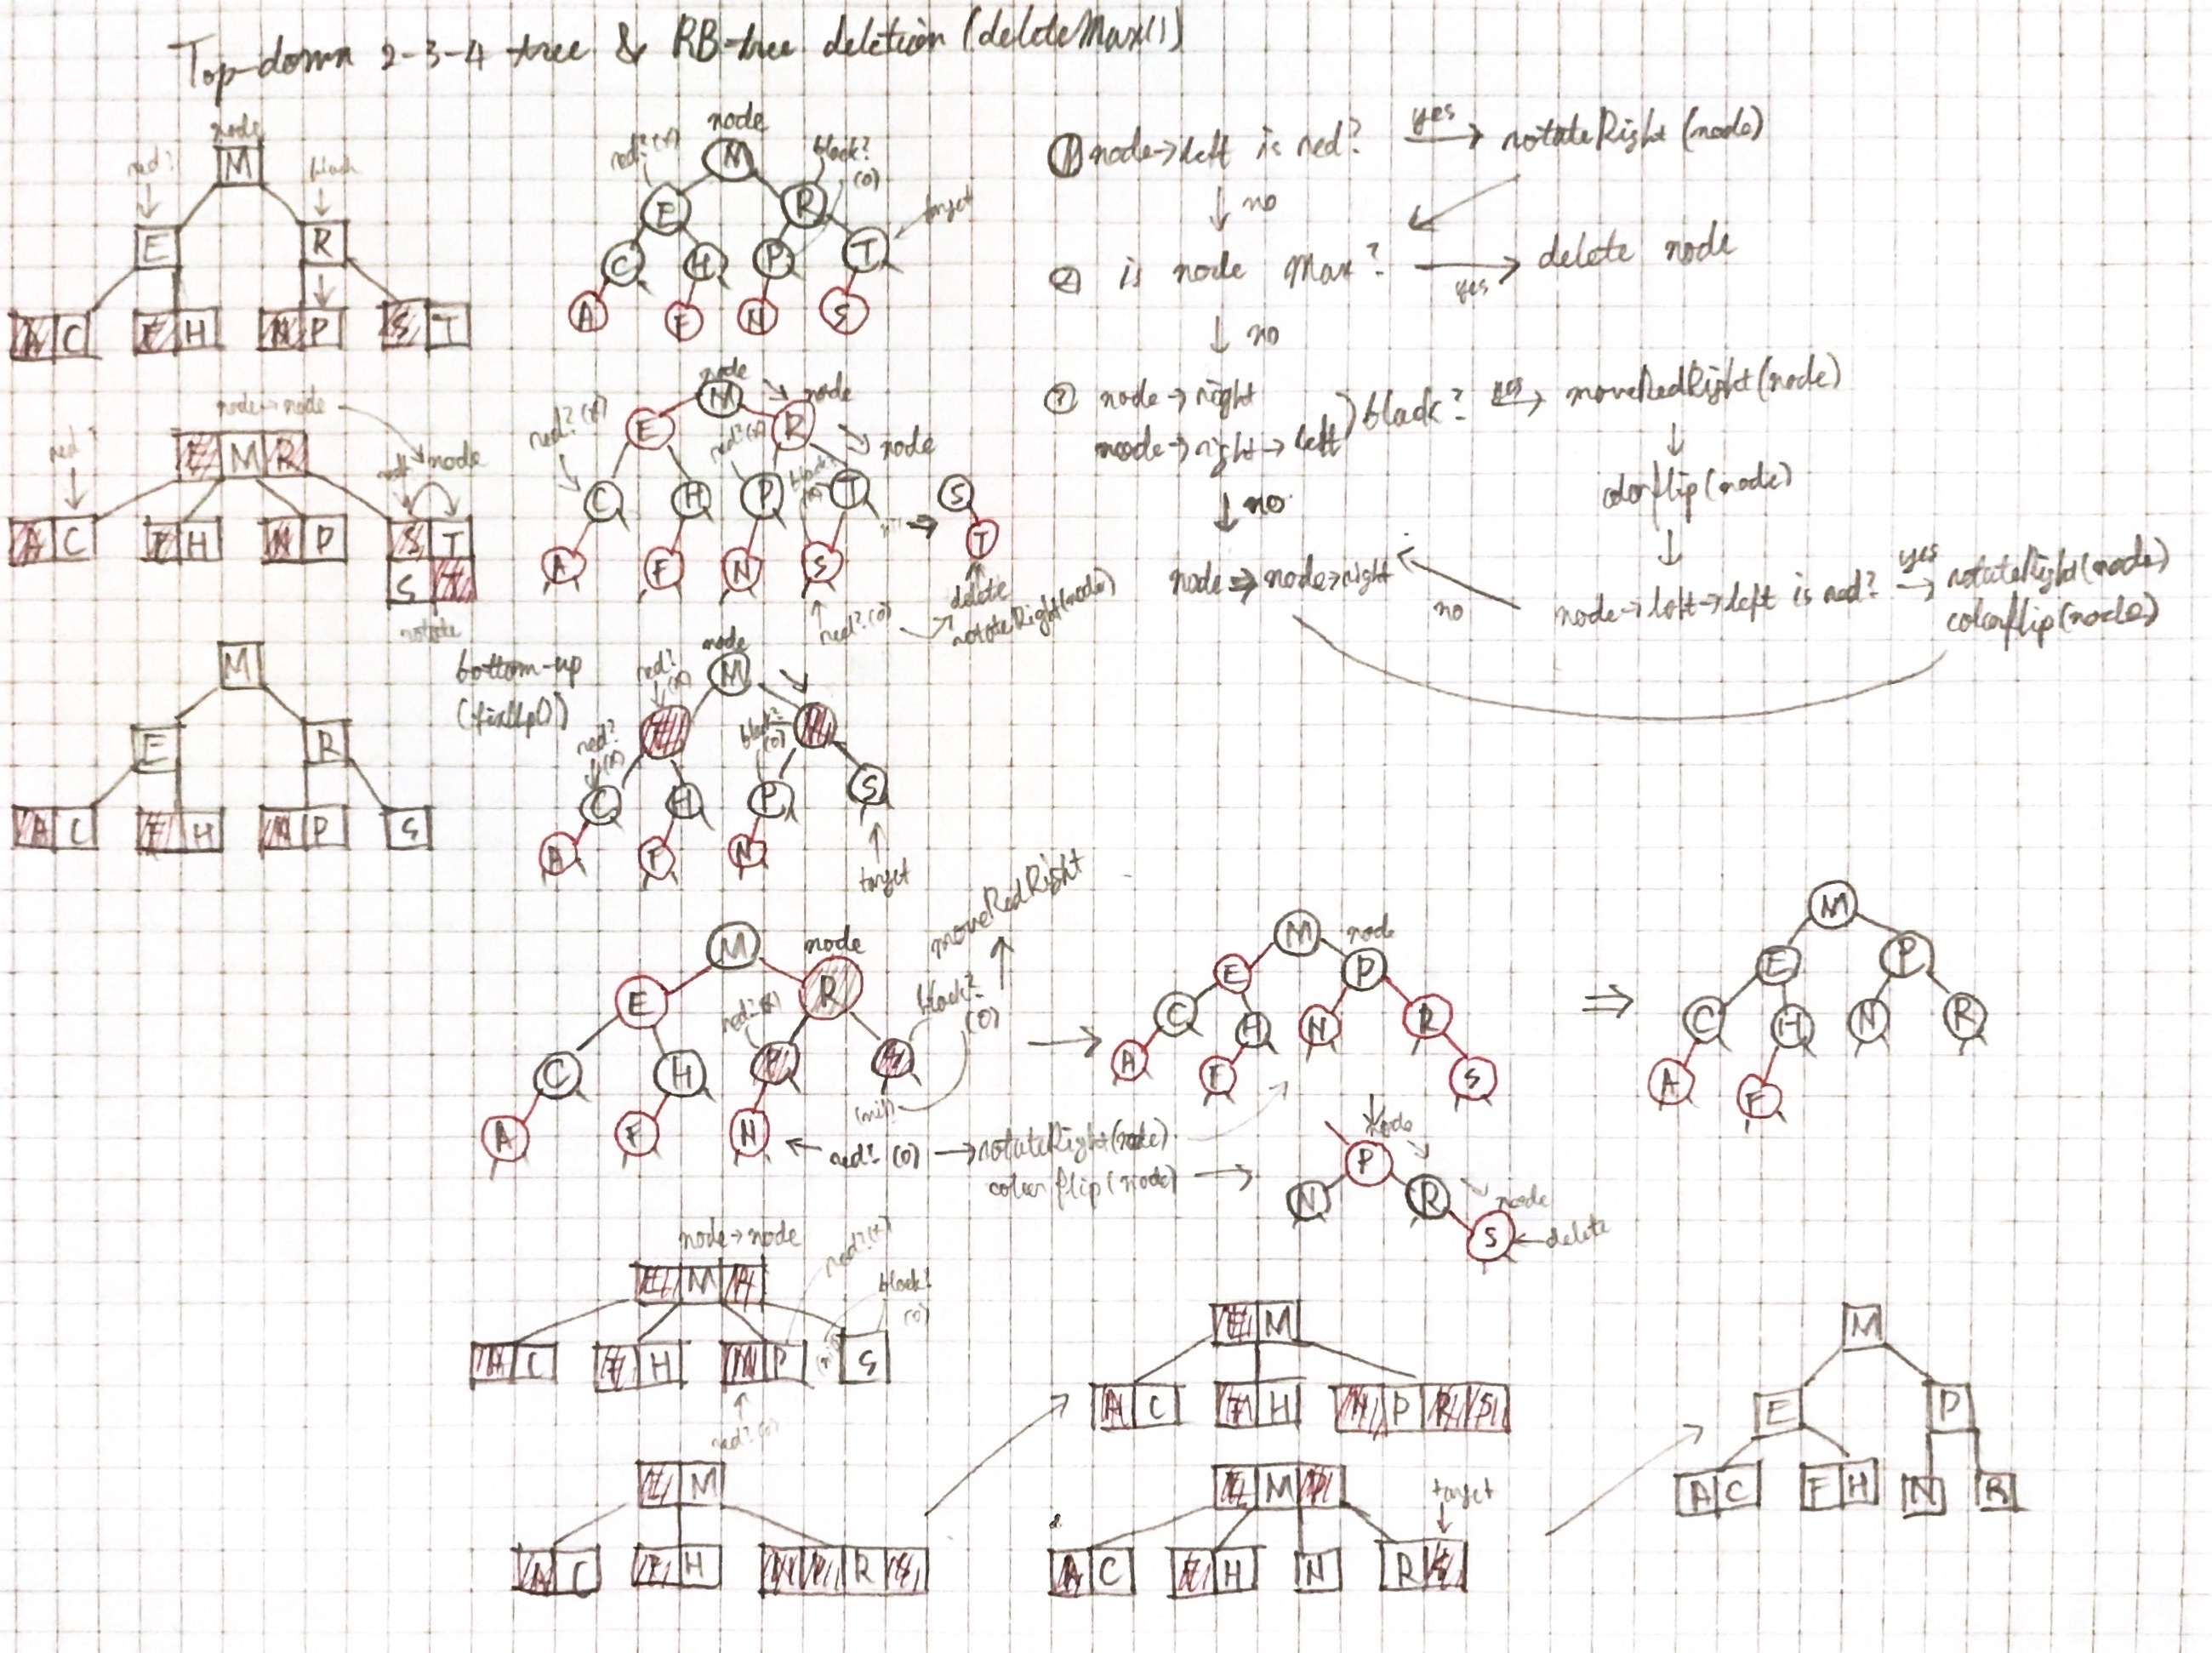 Top-down 2-3-4 tree & RB-tree deletion (deleteMax())
node
M
red?
black
E
R
A C
F H
N P
S T
node
red? (x)
M
black?
(o)
E
R
target
C
H
P
T
A
F
N
S
① node→left is red?
yes
rotateRight(node)
no
② is node Max?
yes
delete node
no
③ node→right
node→right→left
black?
yes
moveRedRight(node)
no
colorflip(node)
node ⇒ node→right
no
node→left→left is red?
yes
rotateRight(node)
colorflip(node)
node→node
red?
E M R
node
A C
F H
N P
S T
S T
rotate
node
M
node
red? (x)
E
red? (x)
R
node
C
H
P
black?
T
A
F
N
S
S
T
red? (o)
delete
rotateRight(node)
M
E
R
A C
F H
N P
S
bottom-up
(fixUp())
node
red?
(x)
M
E
R
red?
(x)
black?
(o)
C
H
P
S
A
F
N
target
M
node
moveRedRight
E
R
red? (x)
black?
(o)
C
H
P
S
(nil)
A
F
N
red? (o)
rotateRight(node)
colorflip(node)
M
node
E
P
C
H
N
R
A
F
S
node
P
N
R
node
S
delete
M
E
P
C
H
N
R
A
F
node→node
red? (x)
E M R
black?
(o)
A C
F H
N P
(nil)
S
red? (o)
E M
A C
F H
N P R S
E M
A C
F H
N P R S
E M P
target
A C
F H
N
R S
M
E
P
A C
F H
N
R